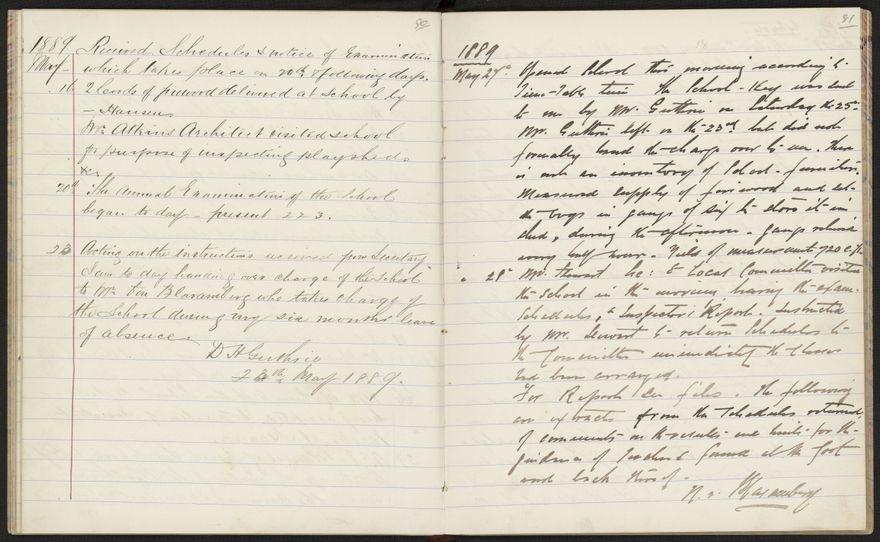 80
1889 Received Schedules & notice of Examination
May - which takes place on 20th & following days.
16 2 Cords of firewood delivered at School by
- Hansen
Mr. Atkins Architect visited school
for purpose of inspecting playsheds
&c.
20th The Annual Examination of the School
began to day - present 223.
23 Acting on the instructions received from Secretary
I am to day handing over charge of the School
to Mr. Von Blaramberg who takes charge of
the School during my six months leave
of absence.
D H Guthrie
23th May 1889.
81
1889
May 27th Opened School this morning according to
Time-Table time. The School-Key was sent
to me by Mr. Guthrie on Saturday the 25th
Mr. Guthrie left on the 23rd but did not
formally hand the charge over to me. There
is not an inventory of School-furniture.
Measured supply of firewood and set
the boys in gangs of six to store it in
shed, during the afternoon - gangs relieved
every half hour. Yield of measurement 720 c.ft.
" 28th Mr. Stewart Sec: to Local Committee visited
the School in the morning leaving the exam-
Schedules, & Inspector's Report. Instructed
by Mr. Stewart to return Schedules to
the Committee immediately the classes
had been arranged.
For Report see files. The following
are extracts from the Schedules returned,
of comments on the results and hints for the
guidance of teachers found at the foot
and back thereof.
N. v. Blaramberg